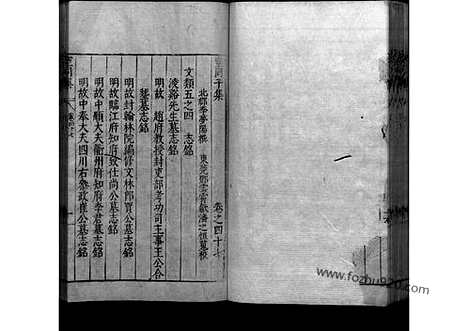 空同子集 卷之四十七
北郡李夢陽撰 東莞鄧雲霄
文類五之四 志銘
淩谿先生墓志銘
明故趙府教授封吏部考功司主事王公合
葬墓志銘
明故封翰林院編修文林郎賈公墓志銘
明故臨江府知府致仕尚公墓志銘
明故中順大夫衢州府知府李君墓志銘
明故中奉大夫四川右參政崔公墓志銘
www.fozhu920.com